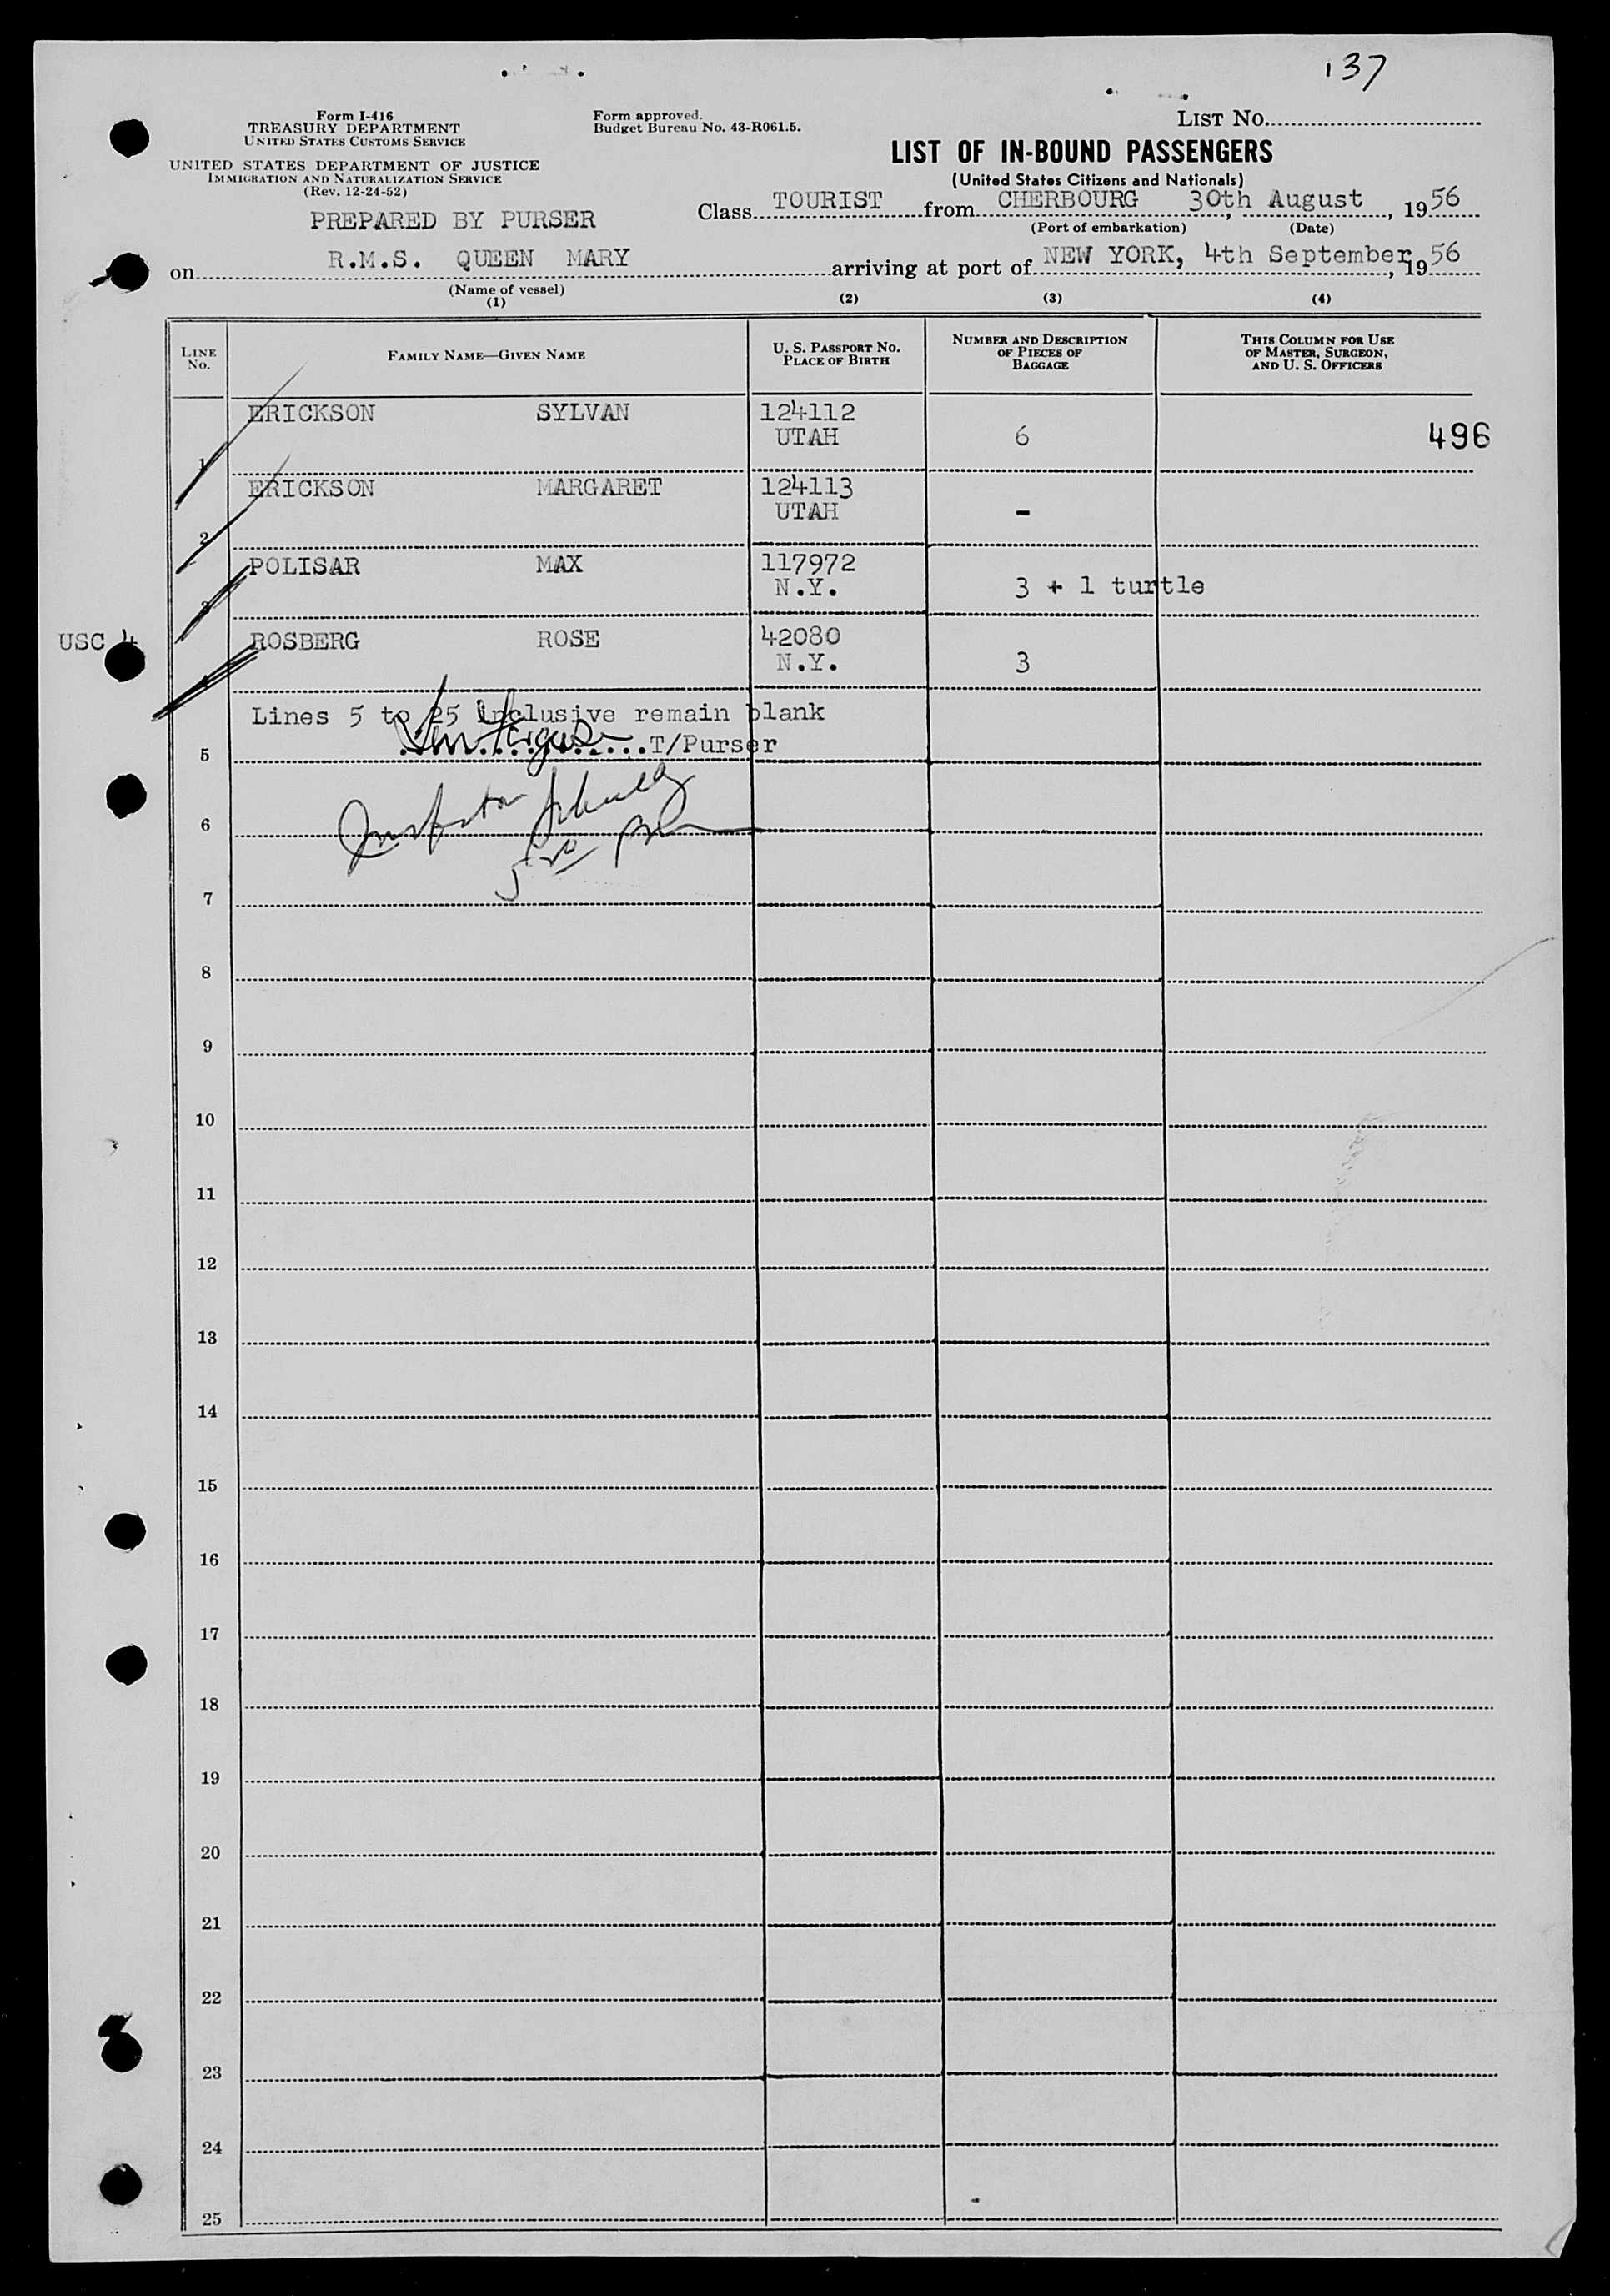 137
Form I-416
TREASURY DEPARTMENT
UNITED STATES CUSTOMS SERVICE
Form approved.
Budget Bureau No. 43-R061.5.
LIST NO.
UNITED STATES DEPARTMENT OF JUSTICE
IMMIGRATION AND NATURALIZATION SERVICE
(Rev. 12-24-52)
LIST OF IN-BOUND PASSENGERS
(United States Citizens and Nationals)
PREPARED BY PURSER
Class TOURIST from CHERBOURG 30th August, 1956
(Port of embarkation) (Date)
on R.M.S. QUEEN MARY arriving at port of NEW YORK, 4th September, 1956
(Name of vessel)
(1) (2) (3) (4)
LINE No. FAMILY NAME—GIVEN NAME U. S. PASSPORT No. PLACE OF BIRTH NUMBER AND DESCRIPTION OF PIECES OF BAGGAGE THIS COLUMN FOR USE OF MASTER, SURGEON, AND U. S. OFFICERS
ERICKSON SYLVAN 124112
1 UTAH 6 496
ERICKSON MARGARET 124113
2 UTAH -
POLISAR MAX 117972
3 N.Y. 3 + 1 turtle
USC 4 ROSBERG ROSE 42080
4 N.Y. 3
Lines 5 to 25 inclusive remain blank
5 T/Purser
6
7
8
9
10
11
12
13
14
15
16
17
18
19
20
21
22
23
24
25